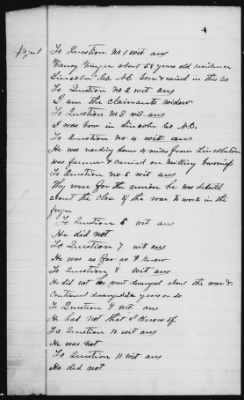 To Question No 1 wit ans
Fanny Finger about 58 years old residence
Lincoln Co N.C. born & raised in this Co
To Question No 2 wit ans
I am the claimants widow
To Question No 3 wit ans
I was born in Lincoln Co N.C.
To Question No 4 wit ans
He was residing hom 4 miles from Lincolnton
was farmer & carried on milling business
To Question No 5 wit ans
They were for the union he was
about the close of the war to work in the
To Question 6 wit ans
He did not
To Question 7 wit ans
He was as far as I know
To Question 8 wit ans
He did not he went deranged about the war &
Continued deranged 2 years or so
To Question 9 wit ans
He had not that I know of
To Question 10 wit ans
He was not
To Question 11 wit ans
He did not